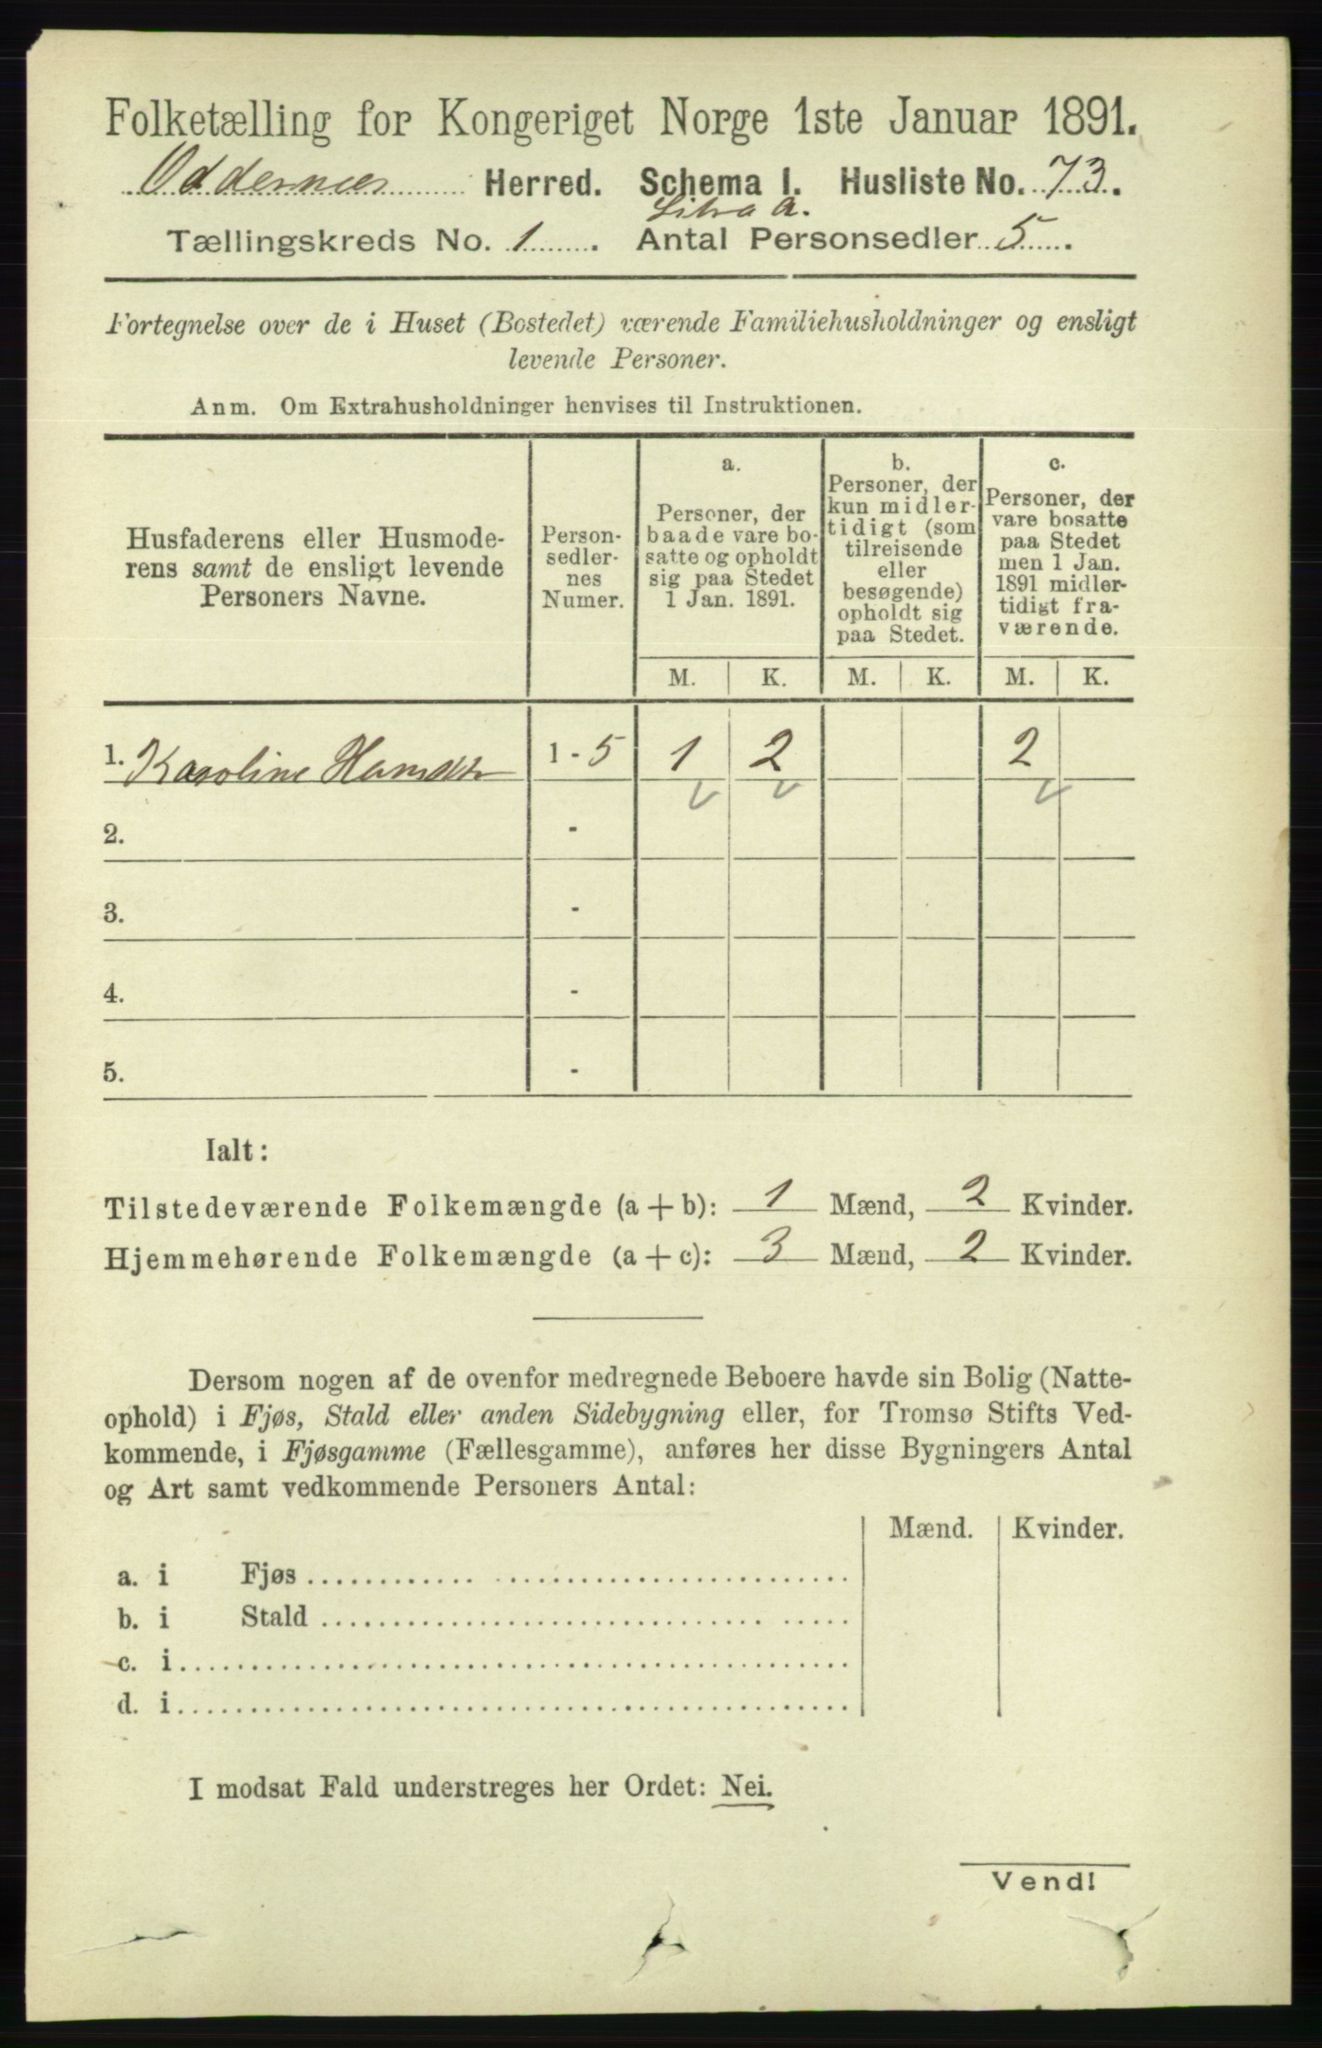 Folketælling for Kongeriget Norge 1ste Januar 1891.
Oddernes Herred. Schema I. Husliste No. 73.
Litra A.
Tællingskreds No. 1. Antal Personsedler 5.
Fortegnelse over de i Huset (Bostedet) værende Familiehusholdninger og ensligt
levende Personer.
Anm. Om Extrahusholdninger henvises til Instruktionen.
Husfaderens eller Husmode-
rens samt de ensligt levende
Personers Navne.
Person-
sedler-
nes
Numer.
a.
Personer, der
baade vare bo-
satte og opholdt
sig paa Stedet
1 Jan. 1891.
b.
Personer, der
kun midler-
tidigt (som
tilreisende
eller
besøgende)
opholdt sig
paa Stedet.
c.
Personer, der
vare bosatte
paa Stedet
men 1 Jan.
1891 midler-
tidigt fra-
værende.
M. K. M. K. M. K.
1. Karoline 1 - 5 1 2 2
2. -
3. -
4. -
5. -
Ialt:
Tilstedeværende Folkemængde (a + b): 1 Mænd, 2 Kvinder.
Hjemmehørende Folkemængde (a + c): 3 Mænd, 2 Kvinder.
Dersom nogen af de ovenfor medregnede Beboere havde sin Bolig (Natte-
ophold) i Fjøs, Stald eller anden Sidebygning eller, for Tromsø Stifts Ved-
kommende, i Fjøsgamme (Fællesgamme), anføres her disse Bygningers Antal
og Art samt vedkommende Personers Antal:
Mænd. Kvinder.
a. i Fjøs
b. i Stald
c. i
d. i
I modsat Fald understreges her Ordet: Nei.
Vend!